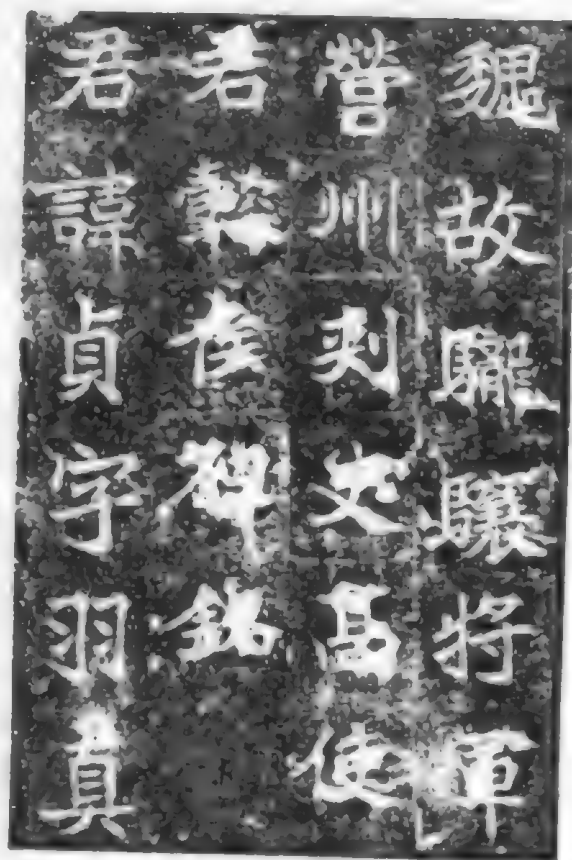 魏故龍驤將軍
營州刺史高使
君懿侯碑銘
君諱貞字羽真